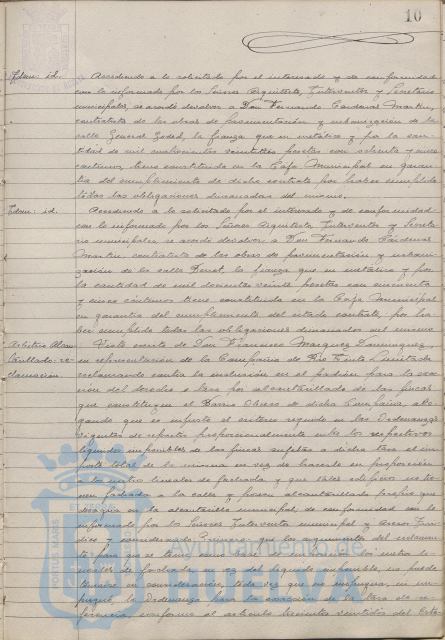 10
Idem: id. Accediendo a lo solicitado por el interesado y de conformidad
con lo informado por los Señores Arquitecto, Interventor y Secretario
municipales, se acordó devolver a Don Fernando Cardenal Martin,
contratista de las obras de Pavimentación y urbanización de la
calle General la fianza que en metálico y por la can-
tidad de mil cuatrocientas pesetas con ochenta y cinco
céntimos, tiene constituida en la Caja Municipal en garan-
tia del cumplimiento de dicho contrato por haber cumplido
todas las obligaciones dimanadas del mismo.
Idem: id. Accediendo a lo solicitado por el interesado y de conformidad
con lo informado por los Señores Arquitecto, Interventor y Secreta-
rio municipales, se acordó devolver a Don Fernando Cardenal
Martin, contratista de las obras de pavimentación y urbani-
zación de la calle la fianza que en metálico y por
la cantidad de mil doscientas veinte pesetas con cincuenta
y cinco céntimos tiene constituida en la Caja Municipal
en garantia del cumplimiento del citado contrato, por ha-
ber cumplido todas las obligaciones dimanadas del mismo
Arbitrio Alcan- Visto escrito de Don Francisco Marquez Dominguez,
tarillado: re- en representación de la Compañia de Rio Tinto Limitada
clamación. reclamando contra la inclusión en el padrón para la exac-
ción del derecho o tasa por alcantarillado de las fincas
que constituyen el Barrio Obrero de dicha Compañia, ale-
gando que es injusto el criterio seguido en las Ordenanzas
vigentes de reparto proporcionalmente entre los respectivos
liquidos imponibles de las fincas sujetas a dicha tasa el im-
porte total de la misma en vez de hacerlo en proporción
a los metros lineales de fachada, y que tales edificios no tie-
nen fachada a la calle y poseen alcantarillado propio que
desagua en la alcantarilla municipal, de conformidad con lo
informado por los Señores Interventor municipal y Asesor Juri-
dico y considerando Primero: que los argumentos del reclaman-
te para que se tome como base los metros li-
neales de fachada en vez del liquido imponible, no puede
tomarse en consideración, toda vez que no impugna, ni im-
pugnó, la Ordenanza para la exacción de la tasa de re-
ferencia, conforme al articulo trescientos veintidos del Esta-
Ayuntamiento de
HUELVA
PORTUS MARIS